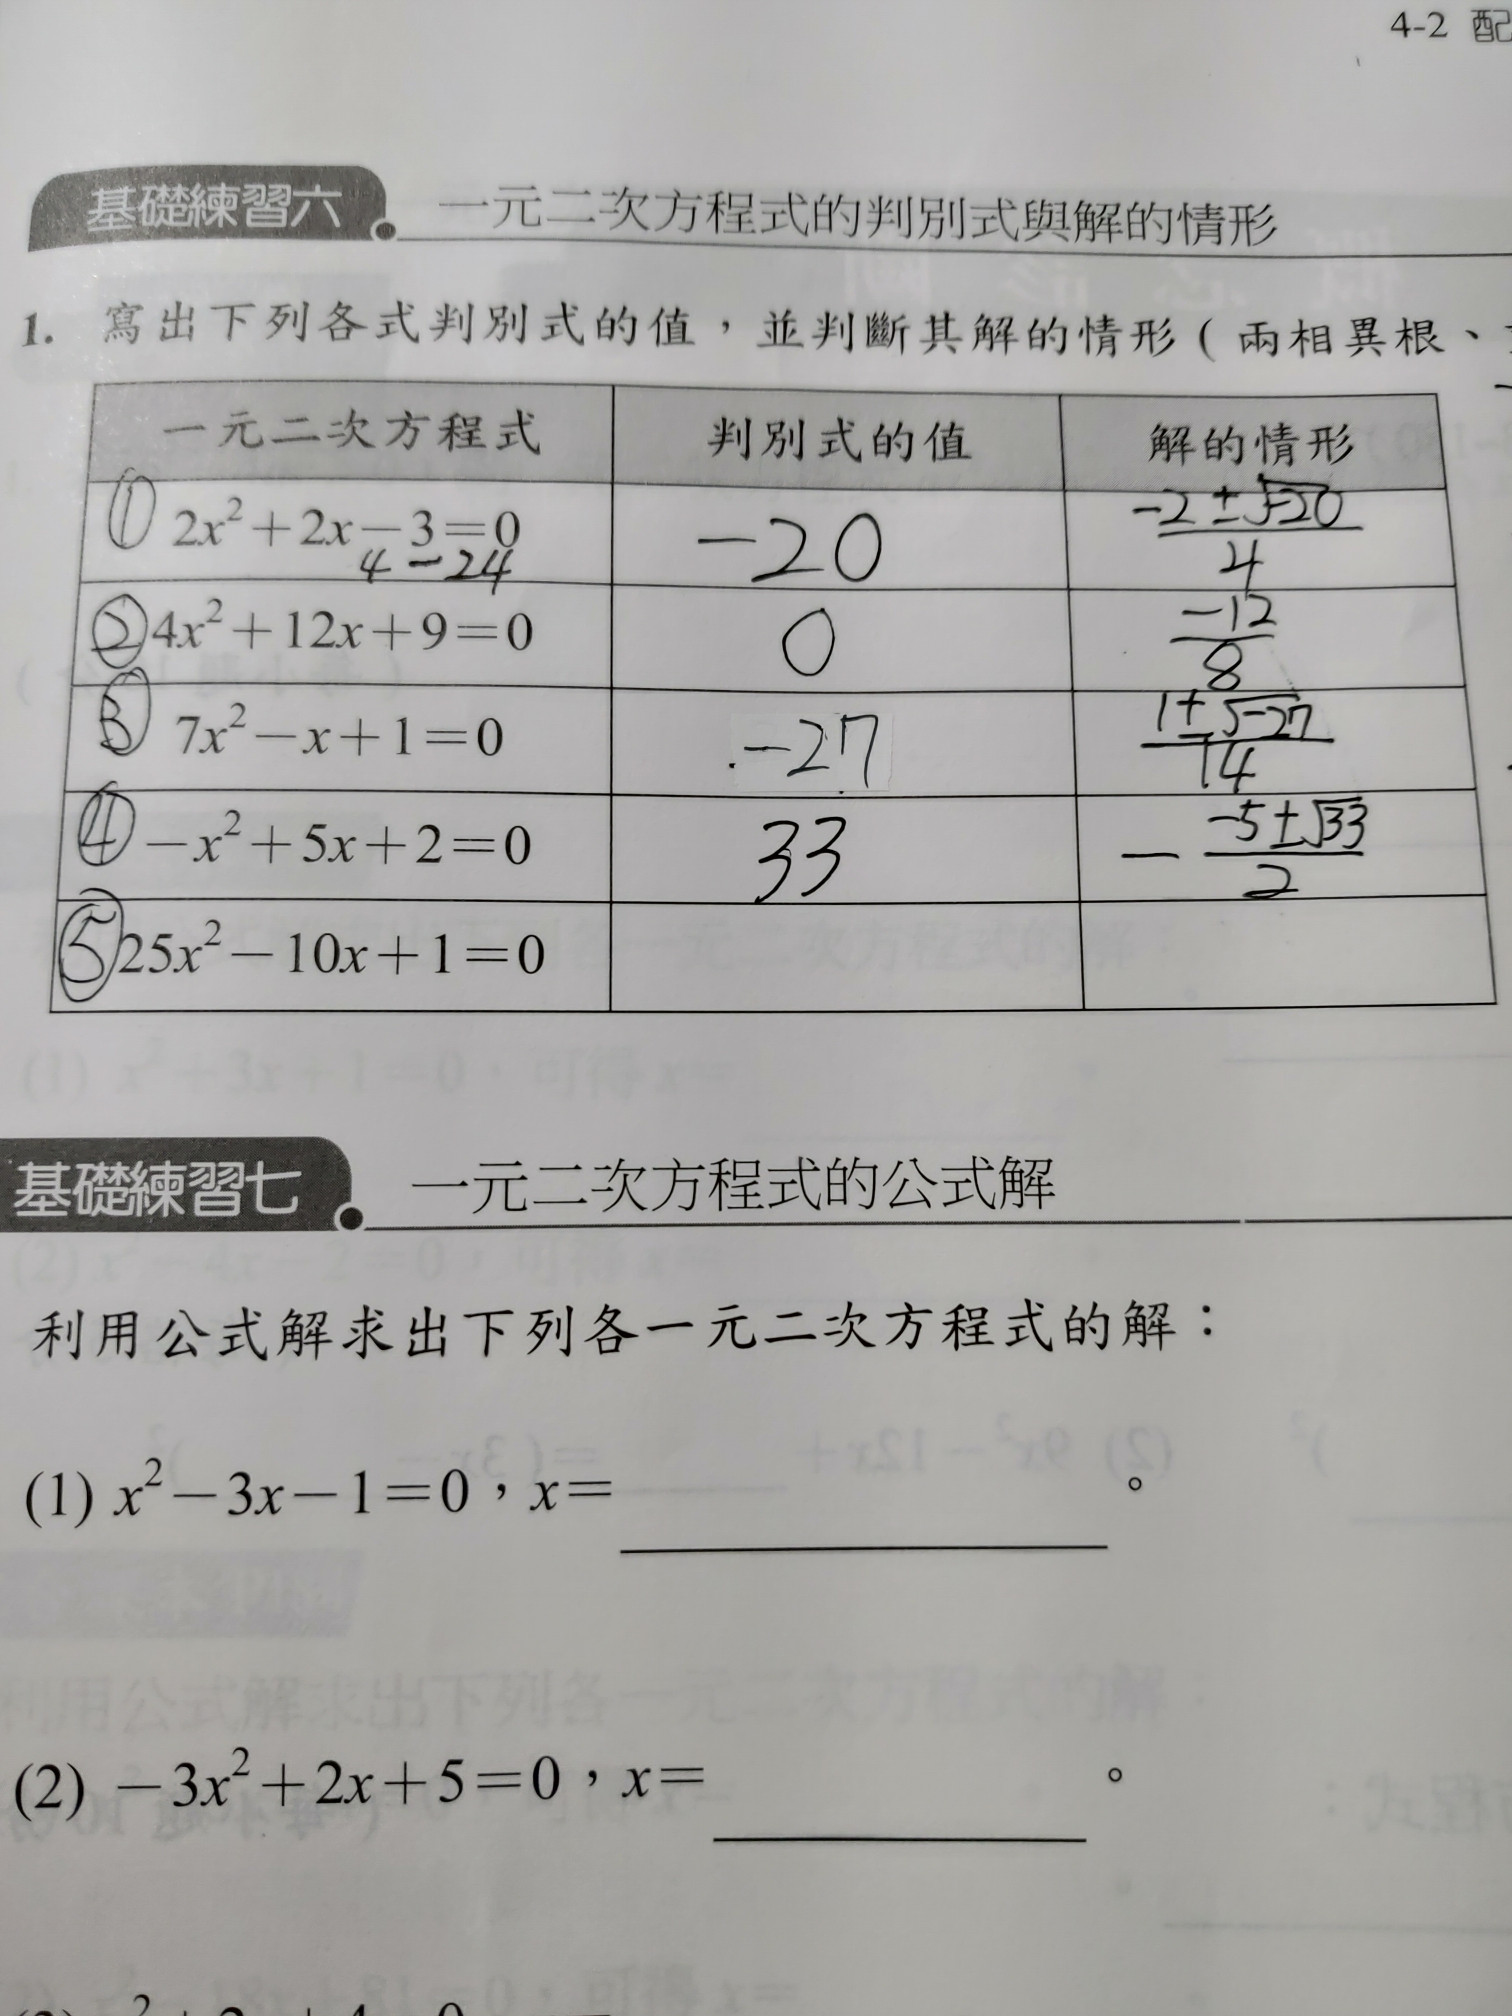 4-2 配
基礎練習六 一元二次方程式的判別式與解的情形
1. 寫出下列各式判別式的值，並判斷其解的情形(兩相異根、
一元二次方程式 判別式的值 解的情形
① 2x²+2x-3=0 -20 (-2±√-20)/4
4-24
② 4x²+12x+9=0 0 -12/8
③ 7x²-x+1=0 -27 (1±√-27)/14
④ -x²+5x+2=0 33 - (-5±√33)/2
⑤ 25x²-10x+1=0
基礎練習七 一元二次方程式的公式解
利用公式解求出下列各一元二次方程式的解：
(1) x²-3x-1=0，x= 。
(2) -3x²+2x+5=0，x= 。